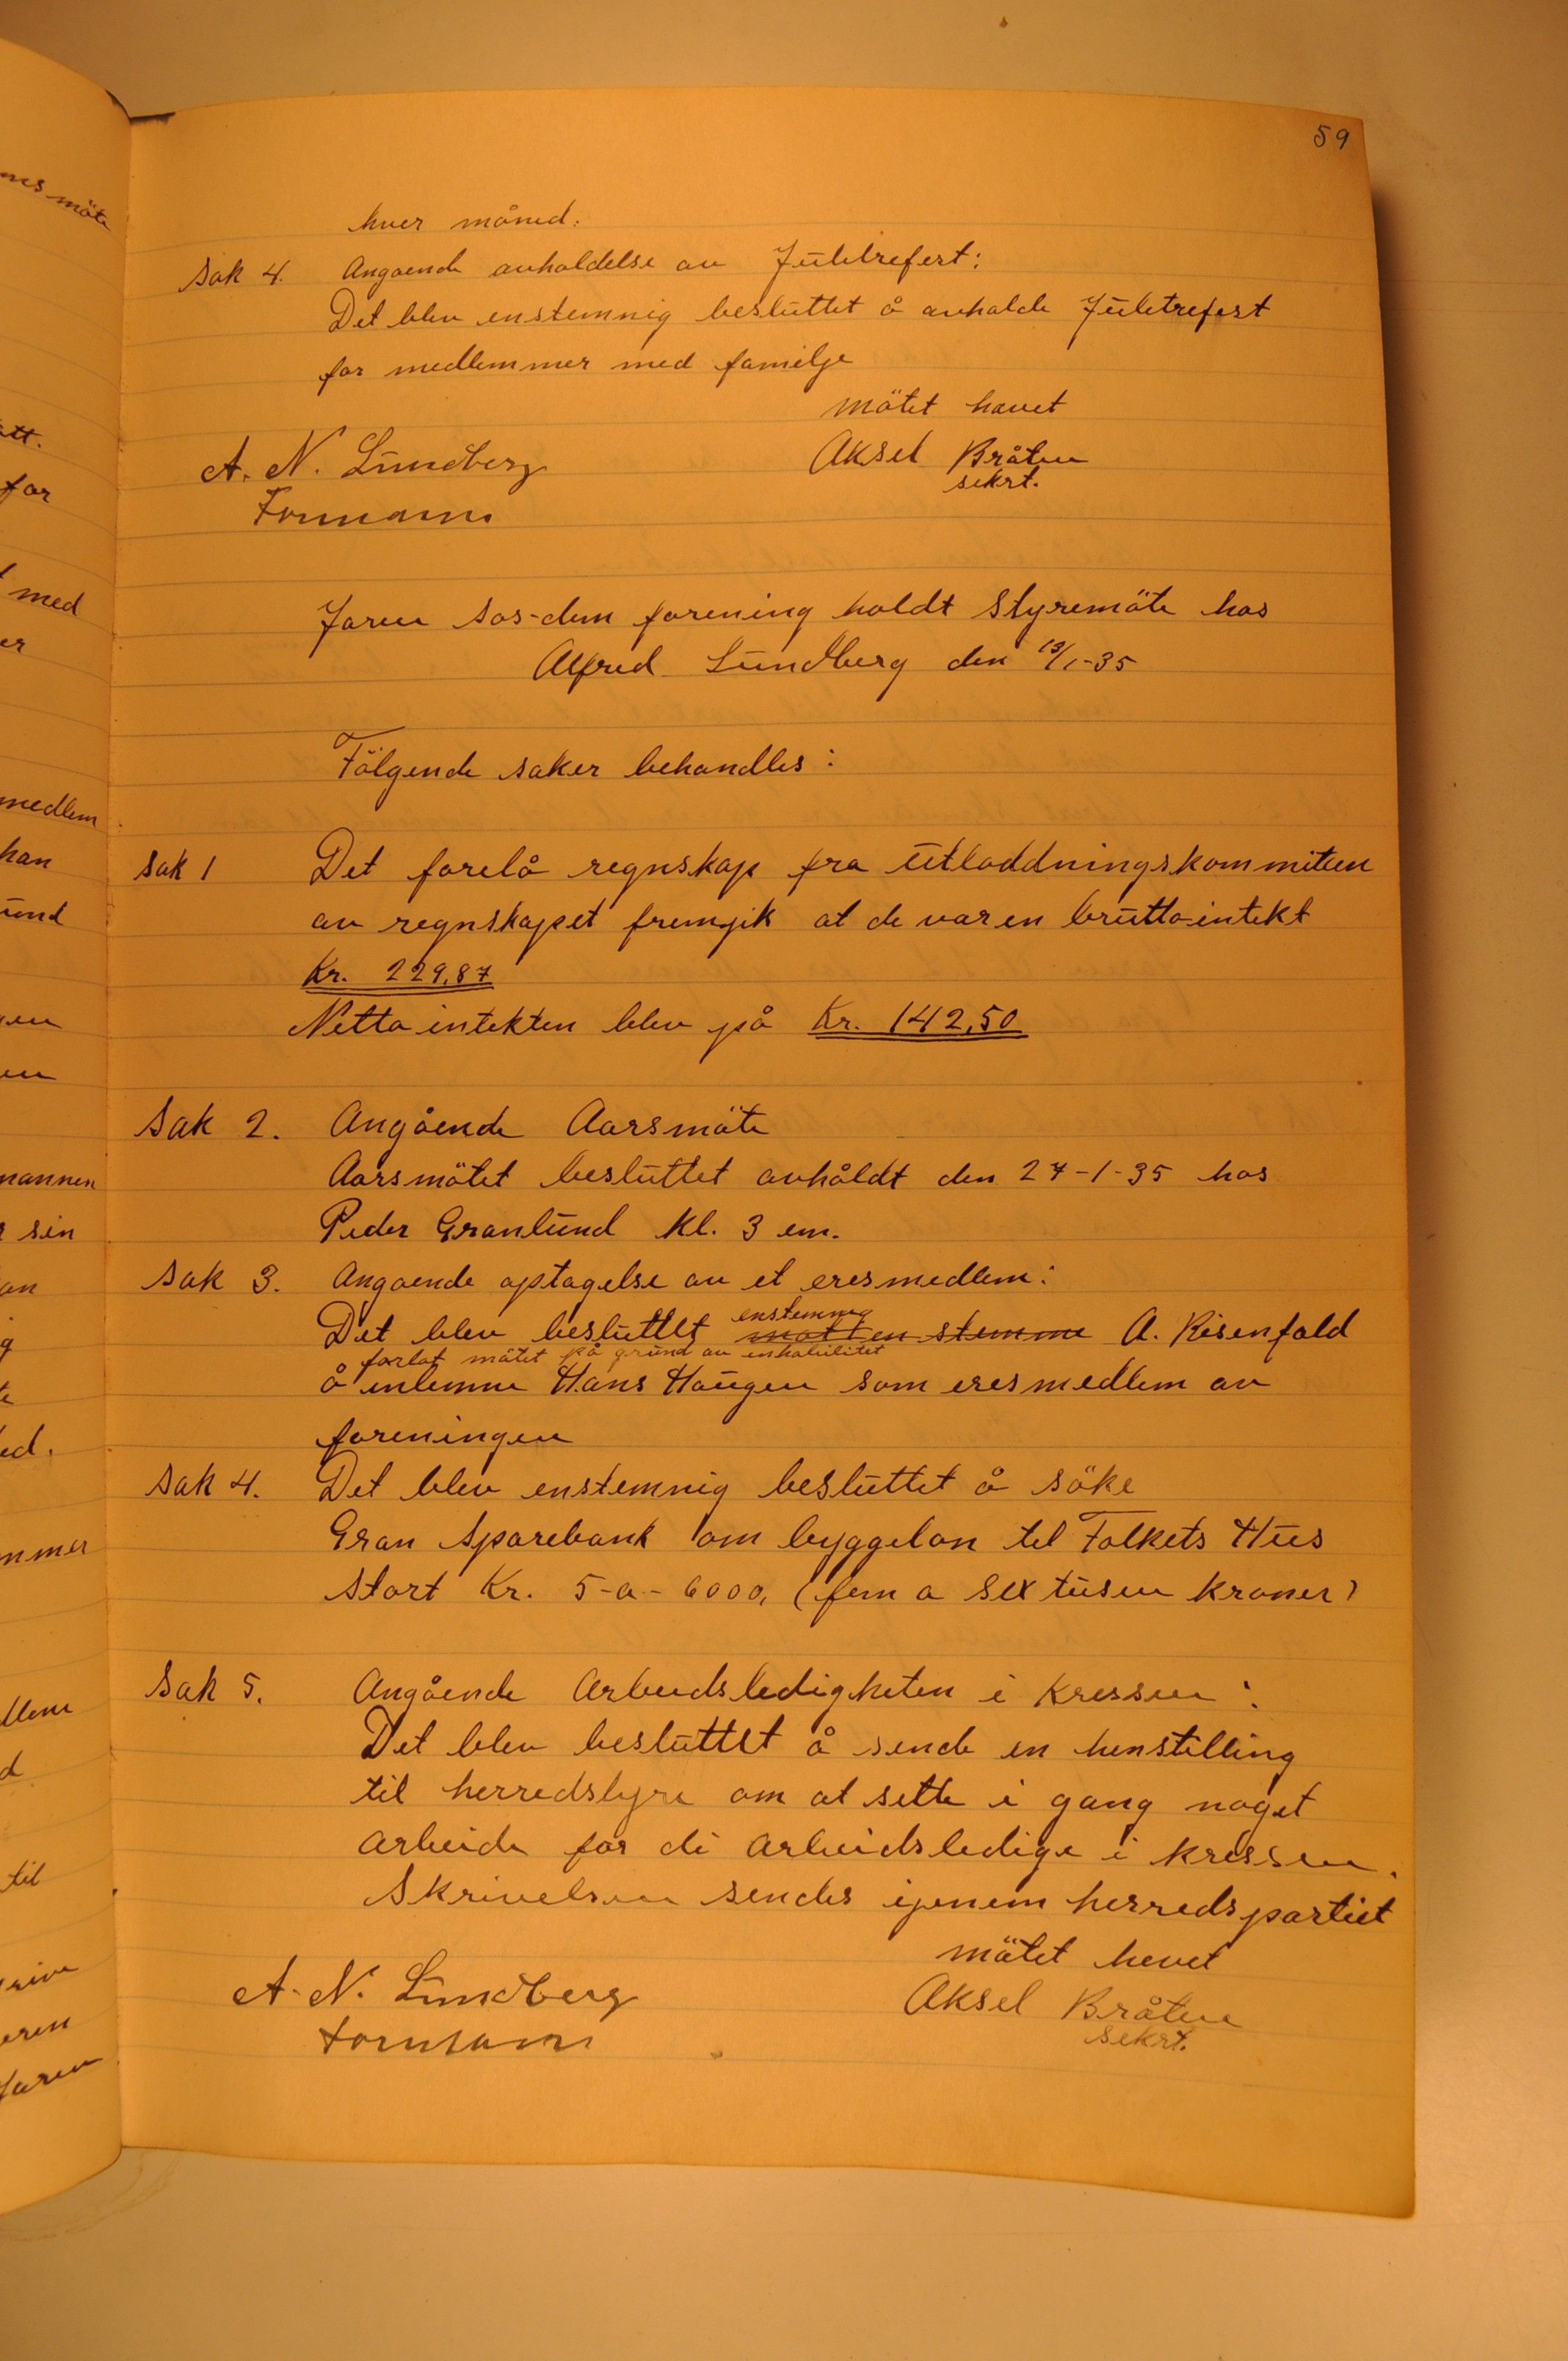 59
hver måned.
Sak 4. Angaende avholdelse av Juletrefest:
Det blev enstemnig besluttet å avholde Juletrefest
for medlemmer med familje
mötet havet
A. N. Lundberg Aksel Bråten
Formann sekrt.
Jaren sos-dem forening holdt Styremöte hos
Alfred Lundberg den 13/1-35
Fölgende saker behandles:
Sak 1 Det forelå regnskap fra Utloddningskommiteen
av regnskapet fremgik at de var en brutto-intekt
Kr. 229,87
Netto intekten blev på Kr. 142,50
Sak 2. Angående Aarsmöte
Aarsmötet besluttet avhåldt den 27-1-35 hos
Peder Granlund Kl. 3 em.
Sak 3. Angaende optagelse av et eresmedlem:
enstemnig
Det blev besluttet mott en stemme A. Risenfald
forlot mötet på grund av inhabilitet
å inlemme Hans Haugen som eresmedlem av
foreningen
Sak 4. Det blev enstemnig besluttet å söke
Gran Sparebank om byggelon til Folkets Hus
stort Kr. 5-a-6000, (fem a sex tusen kroner)
Sak 5. Angående Arbeidsledigheten i Kressen:
Det blev besluttet å sende en henstilling
til herredstyre om at sette i gang noget
arbeide for di arbeidsledige i kressen.
Skrivelsen sendes ijenem herredspartiet
mötet hevet
A. N. Lundberg Aksel Bråten
formann sekrt.